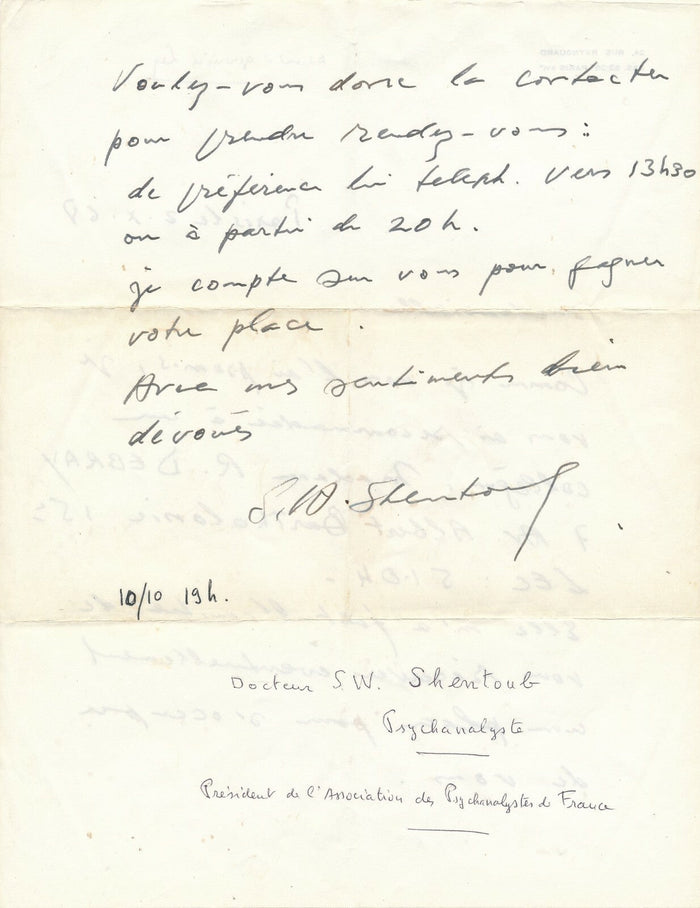 Voulez-vous donc la contacter
pour prendre rendez-vous :
de préférence lui téleph. vers 13h30
ou à partir de 20h.
je compte sur vous pour gagner
votre place.
Avec mes sentiments bien
dévoués
S.W. Shentoub
10/10 19h.
Docteur S.W. Shentoub
Psychanalyste
Président de l'Association des Psychanalystes de France